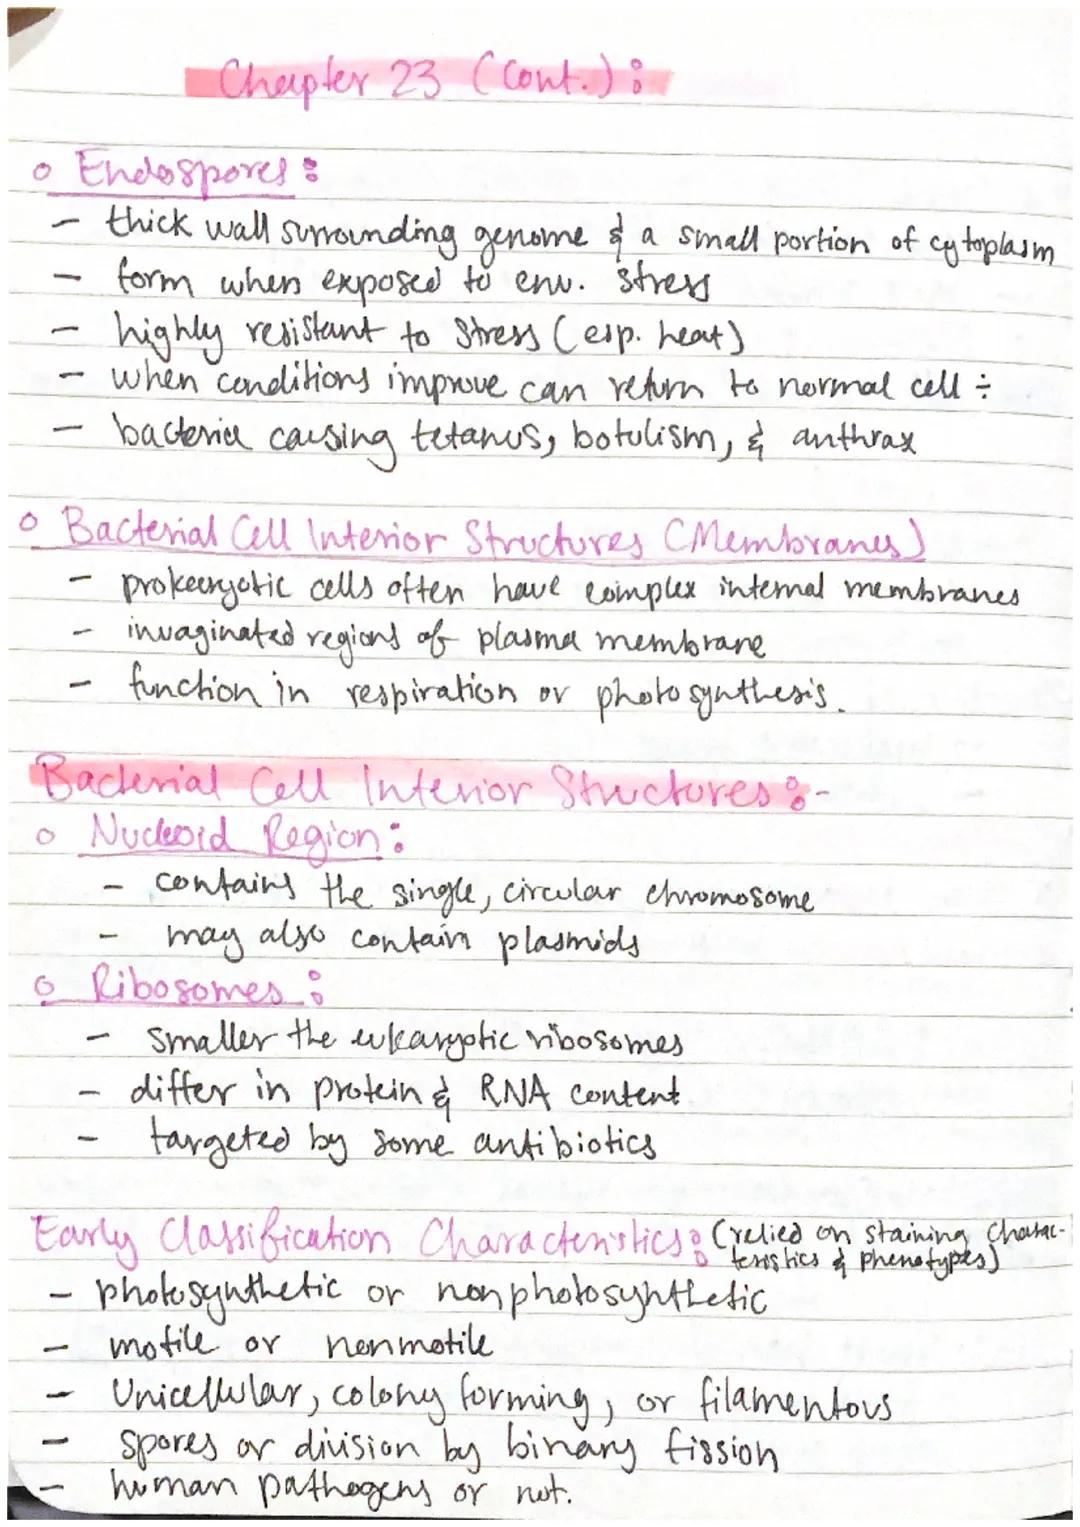 Chapter 23 (Cont.):
o Endospores:
- thick wall surrounding genome & a small portion of cytoplasm
- form when exposed to env. stress
- highly resistant to stress (esp. heat)
- when conditions improve can return to normal cell ÷
- bacteria causing tetanus, botulism, & anthrax
o Bacterial Cell Interior Structures (Membranes)
- prokaryotic cells often have complex internal membranes
- invaginated regions of plasma membrane
- function in respiration or photosynthesis.
Bacterial Cell Interior Structures:-
o Nucleoid Region:
- contains the single, circular chromosome
- may also contain plasmids
o Ribosomes:
- smaller the eukaryotic ribosomes
- differ in protein & RNA content
- targeted by some antibiotics
Early Classification Characteristics: (relied on staining charac-
teristics & phenotypes)
- photosynthetic or nonphotosynthetic
- motile or nonmotile
- Unicellular, colony forming, or filamentous
- spores or division by binary fission
- human pathogens or not.